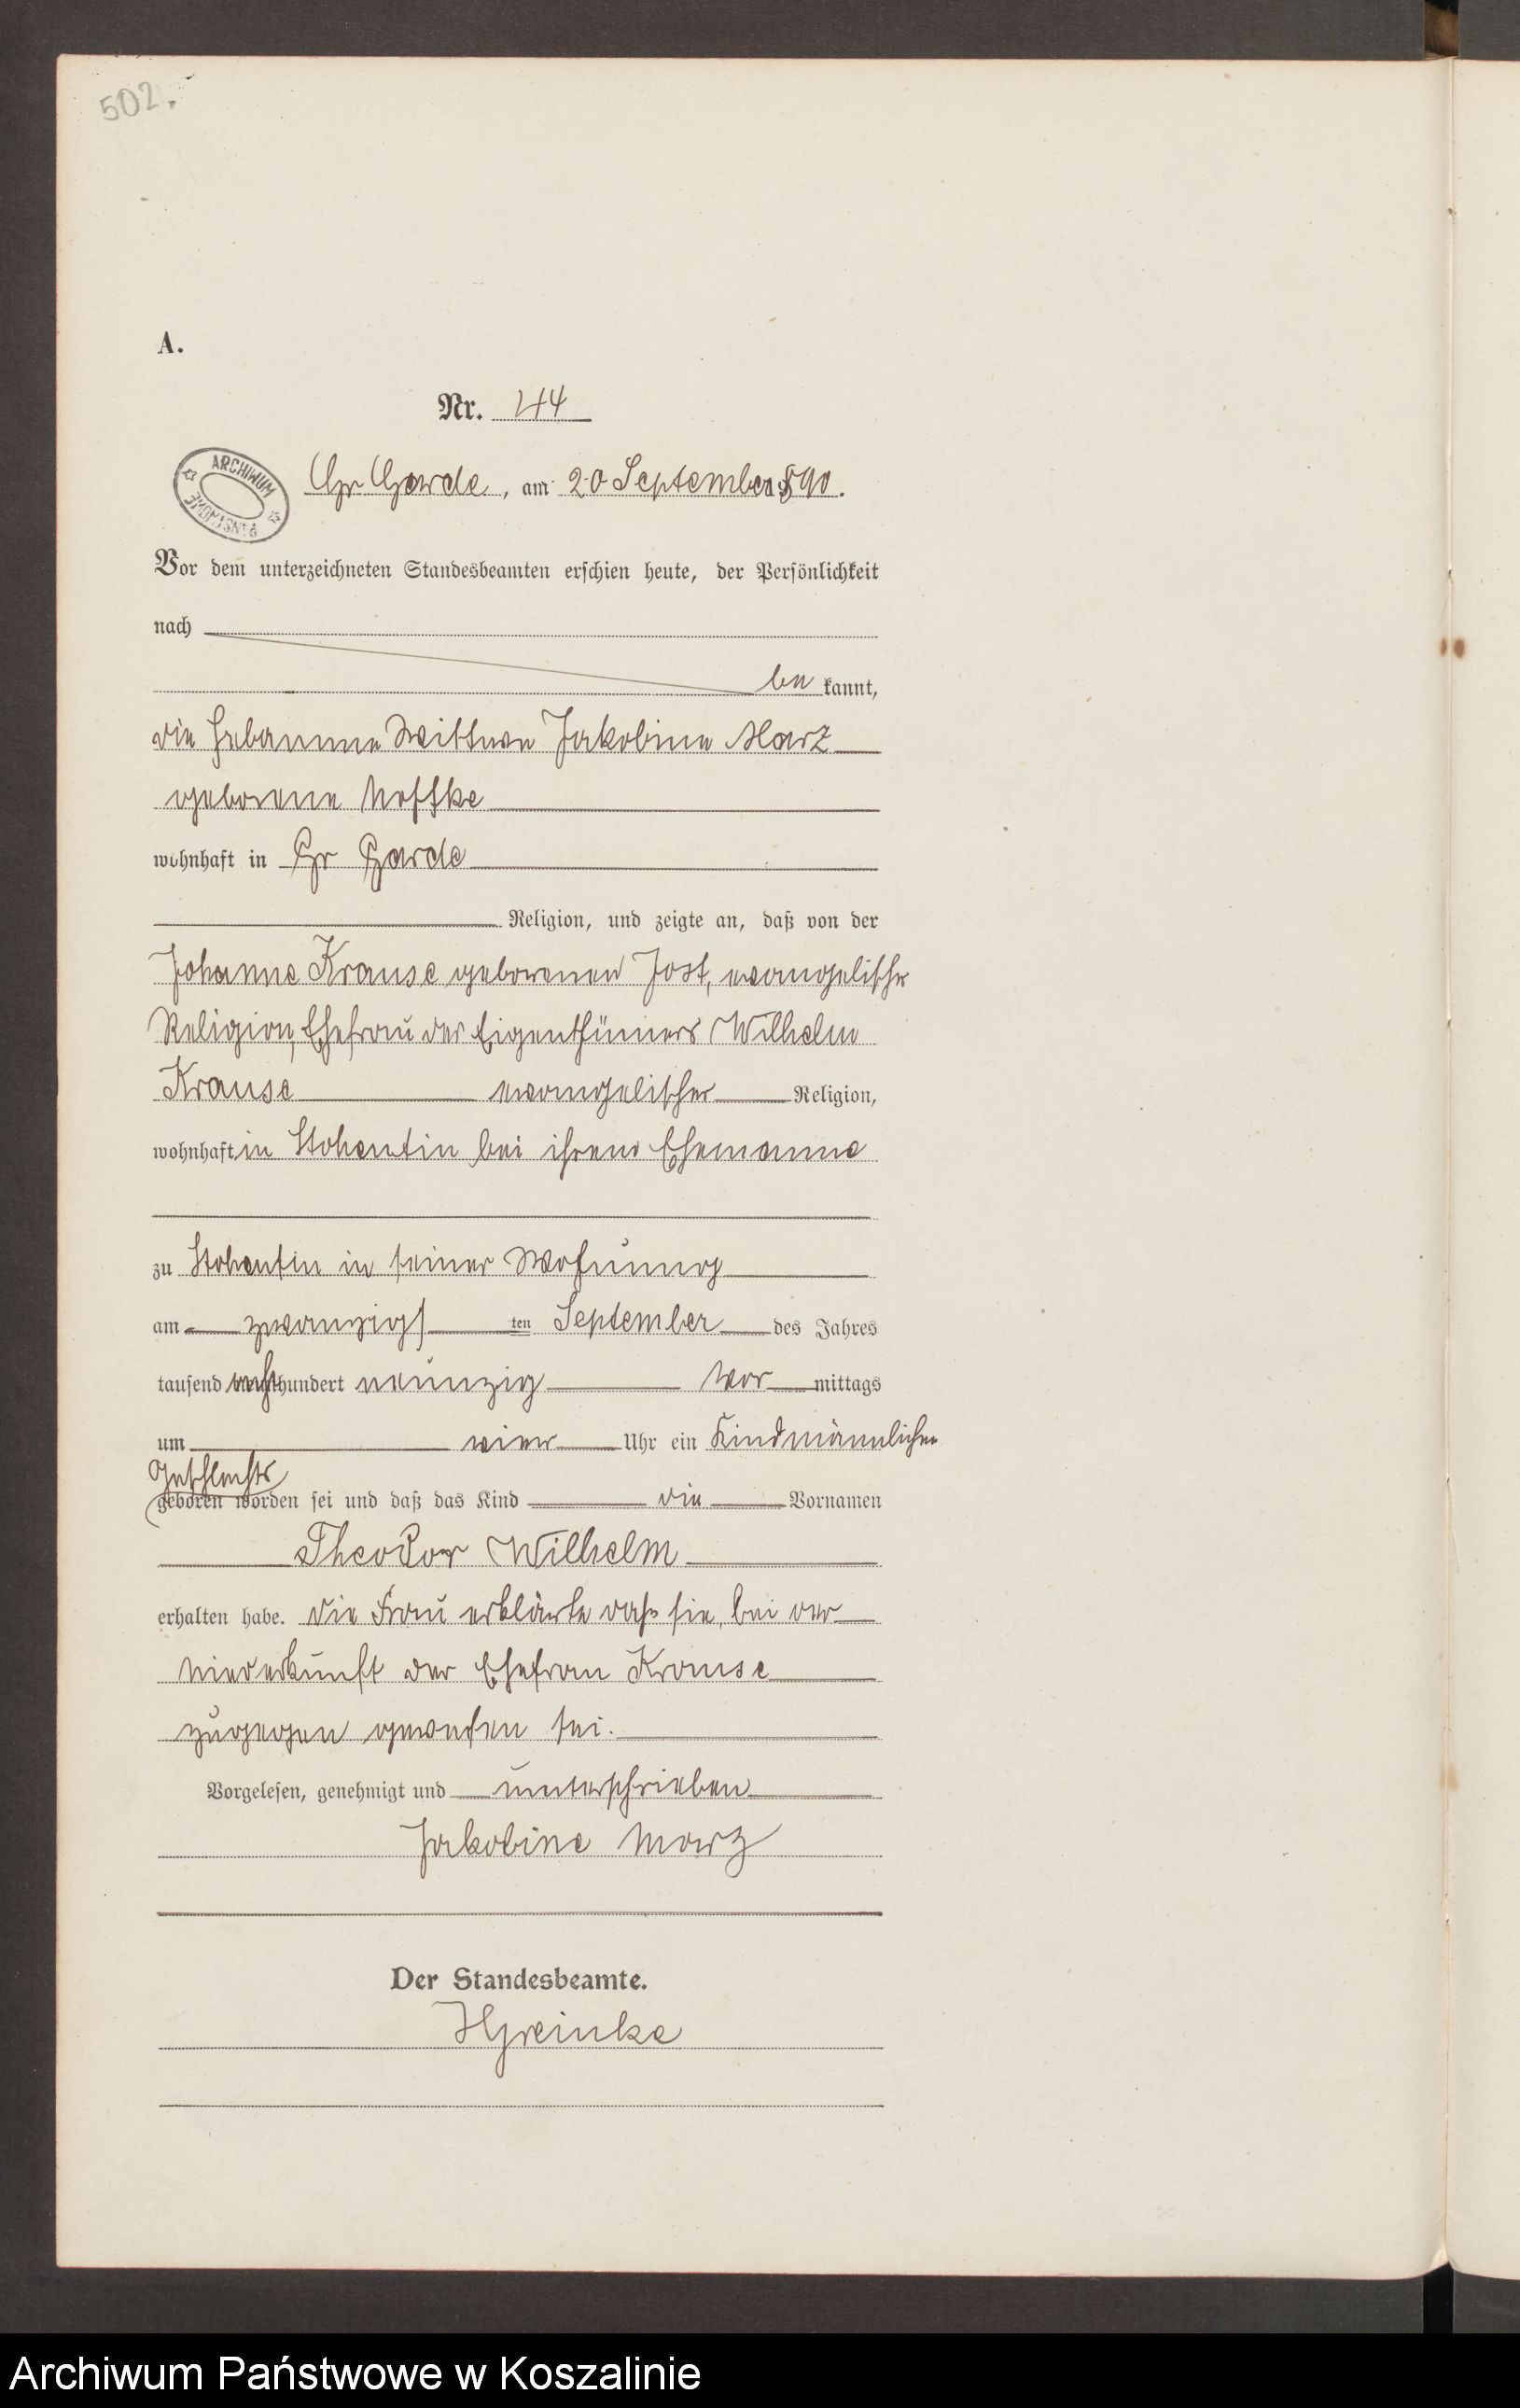 502.
A.
Nr. 144
ARCHIWUM PAŃSTWOWE
Gr. Garde, am 20 September 1890.
Vor dem unterzeichneten Standesbeamten erschien heute, der Persönlichkeit
nach
be kannt,
die Hebamme Wittwe Jakobine Marz
geborene Noffke
wohnhaft in Gr Garde
Religion, und zeigte an, daß von der
Johanne Krause geborenen Jost, evangelischer
Religion, Ehefrau des Eigenthümers Wilhelm
Krause evangelischer Religion,
wohnhaft in Stohentin bei ihrem Ehemanne
zu Stohentin in seiner Wohnung
am zwanzigs ten September des Jahres
tausend acht hundert neunzig Vor mittags
um vier Uhr ein Kind männlichen
Geschlechts
geboren worden sei und daß das Kind die Vornamen
Theodor Wilhelm
erhalten habe. Die Frau erklärte daß sie, bei der
Niederkunft der Ehefrau Krause
zugegen gewesen sei.
Vorgelesen, genehmigt und unterschrieben
Jakobine Marz
Der Standesbeamte.
Archiwum Państwowe w Koszalinie